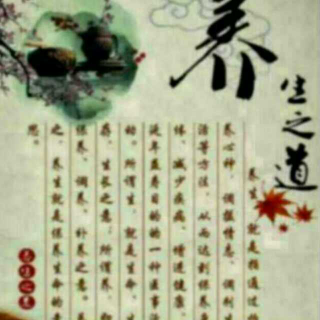 养
生之道
养生，就是指通过
养心神，调摄情志、调剂生
活等方法，从而达到保养身
体、减少疾病、增进健康、
延年益寿目的的一种医事活
动。所谓生，就是生命、生
存、生长之意；所谓养，即
保养、调养、补养之意。
之，养生就是保养生命的意
思。